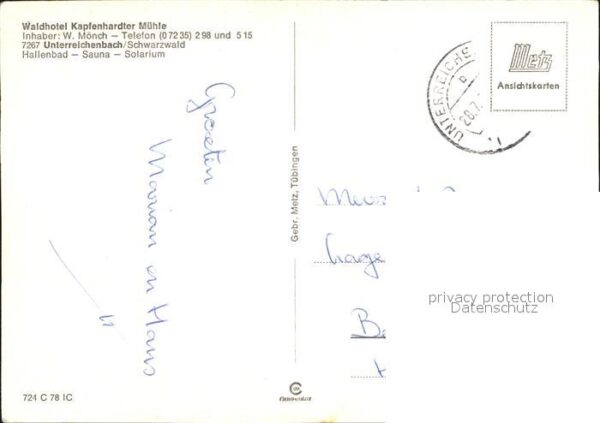 Waldhotel Kapfenhardter Mühle
Inhaber: W. Mönch – Telefon (0 72 35) 2 98 und 5 15
7267 Unterreichenbach/Schwarzwald
Hallenbad – Sauna – Solarium
Groeten
Marian en Hans
Gebr. Metz, Tübingen
Metz
Ansichtskarten
UNTERREICHE
privacy protection
Datenschutz
724 C 78 IC